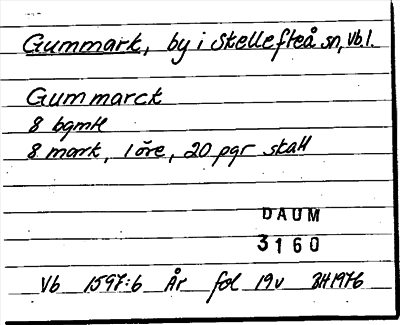 Gummark, by i Skellefteå sn, Vb.l.
Gummarck
8 bgmH
8 mark, 1 öre, 20 pgr skaH
DAUM
3160
Vb 1597:6 År fol 19v BH1976